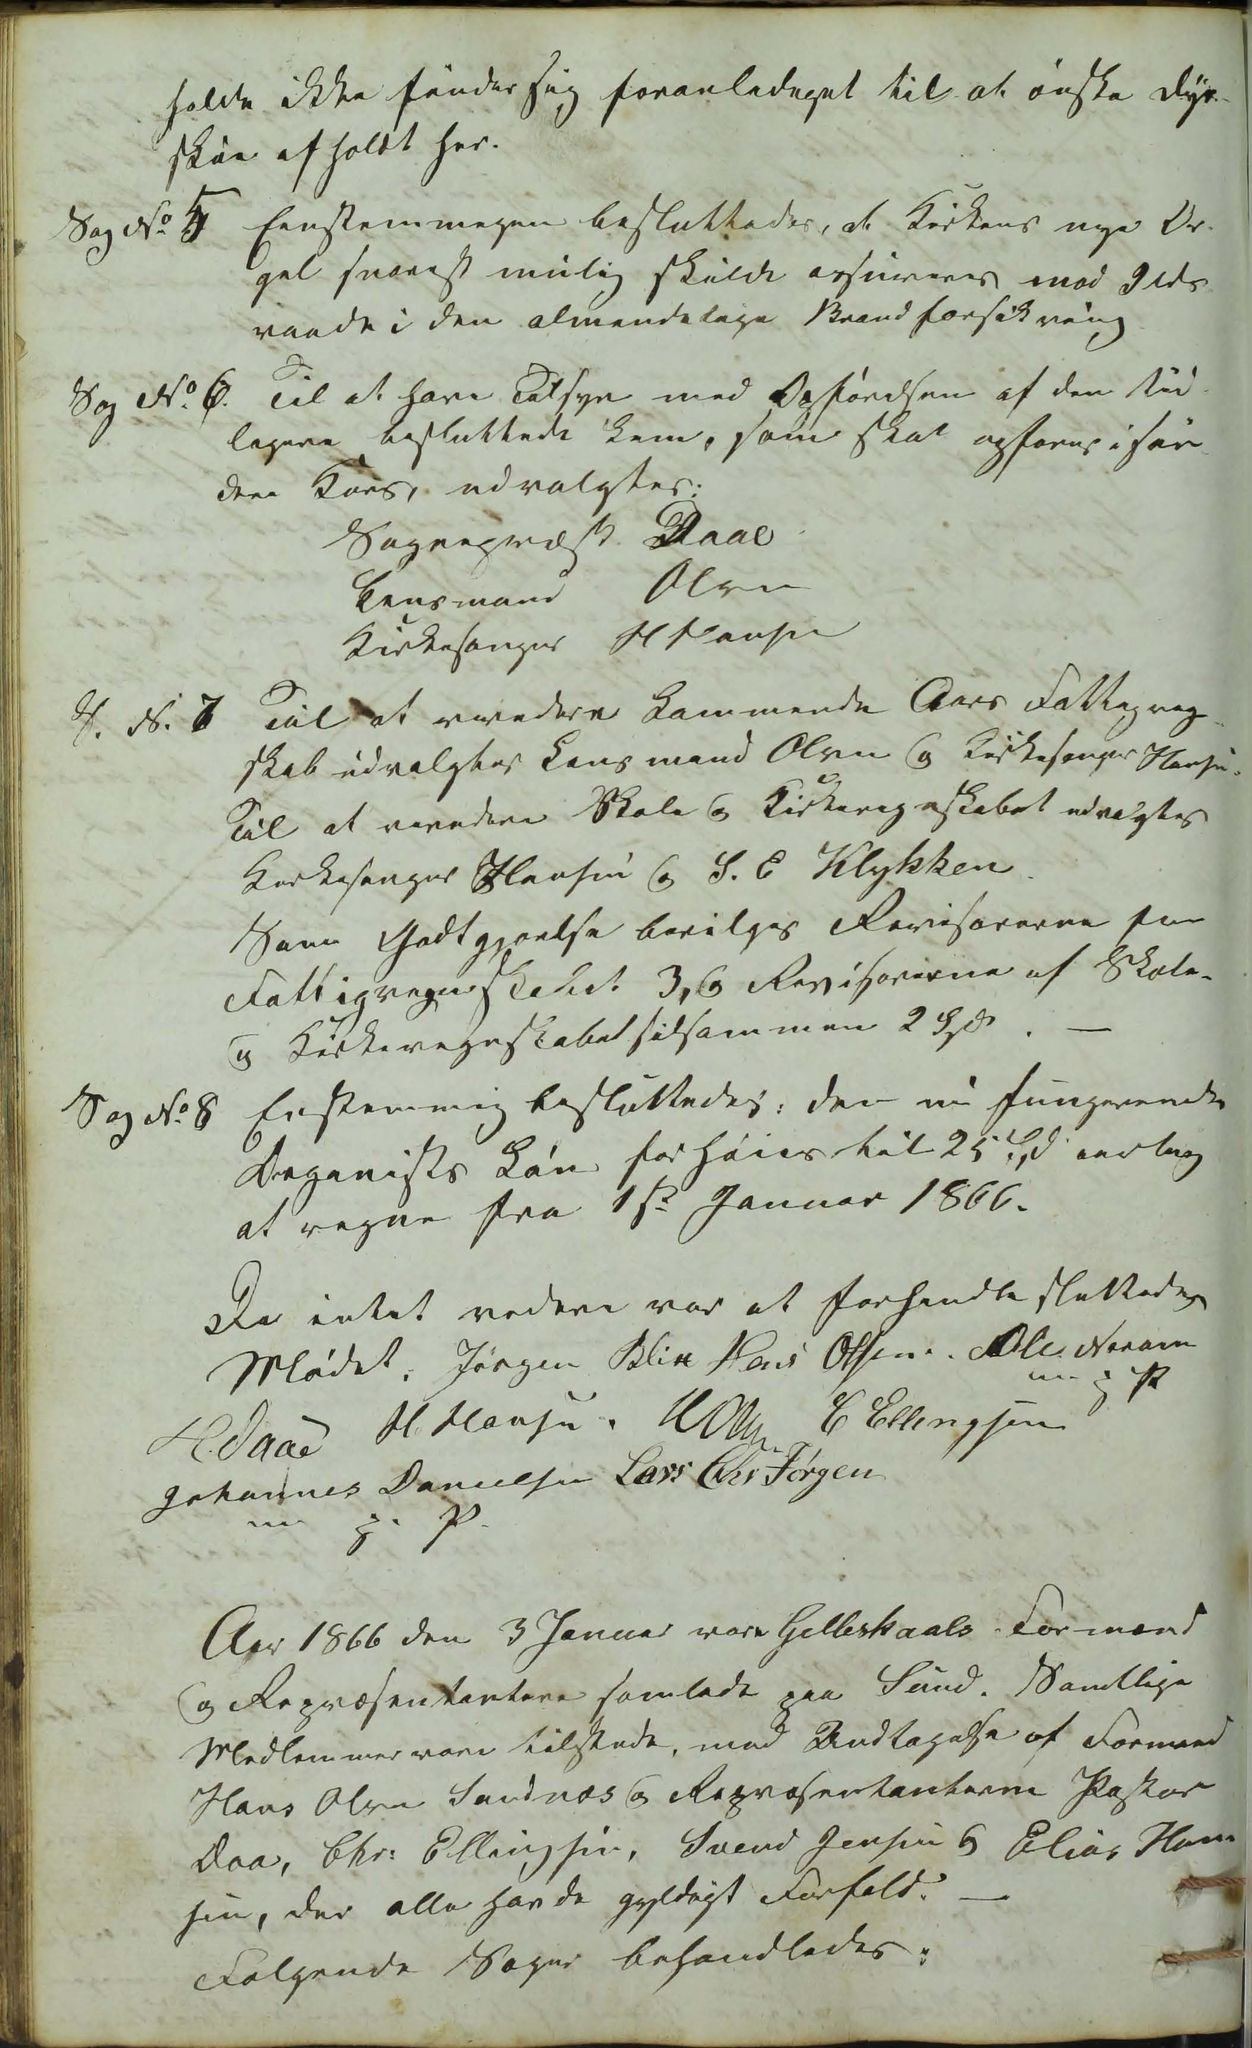 holde ikke finder sig foranlediget til at ønske Dyr-
skue afholdt her.
Sag No 5 Eenstemmigen besluttedes, at Kirkens nye Or-
gel snarest mulig skulde assureres mod Ilds-
vaade i den almindelige Brandforsikring
Sag No. 6. Til at have Tilsyn med Opførelsen af den tid-
ligere besluttede som skal opføres i
dens udvalgtes:
Sognepræst Daae
Lensmand Olsen
Kirkesanger H Hansen
S. N. 7 Til at revidere kommende Aars Fattigregn-
skab udvalgtes Lensmand Olsen og Kirkesanger Hansen.
Til at revidere Skole og Kirkeregnskabet udvalgtes
Kirkesanger Hansen og S. C Klykken.
Som Godtgjørelse bevilges Revisorerne for
Fattigregnskabet 3, og Revisorerne af Skole-
og Kirkeregnskabet tilsammen 2 Spd. —
Sag No. 8 Enstemmig besluttedes: den nu fungerende
Organists Løn forhøies til 25 Spd aarlig
at regne fra 1ste Januar 1866.
Da intet videre var at forhandle sluttedes
Mødet. Jørgen Blix Hans Olsen. Ole
m p P
H. Daae H. Hansen. C Ellingsen
Johannes Danielsen Lars Chr Jørgen
m p. P.
Aar 1866 den 3 Januar vare Gilleskaals Formænd
og Repræsentantere samlede paa Sund. Samtlige
Medlemmer vare tilstede, med Undtagelse af Formand
Hans Olsen Sandnæs og Repræsentanterne Pastor
Daa, Chr: Ellingsen, Svend Jensen og Elias Han-
sen, der alle havde gyldigt Forfald. —
Følgende Sager behandledes: